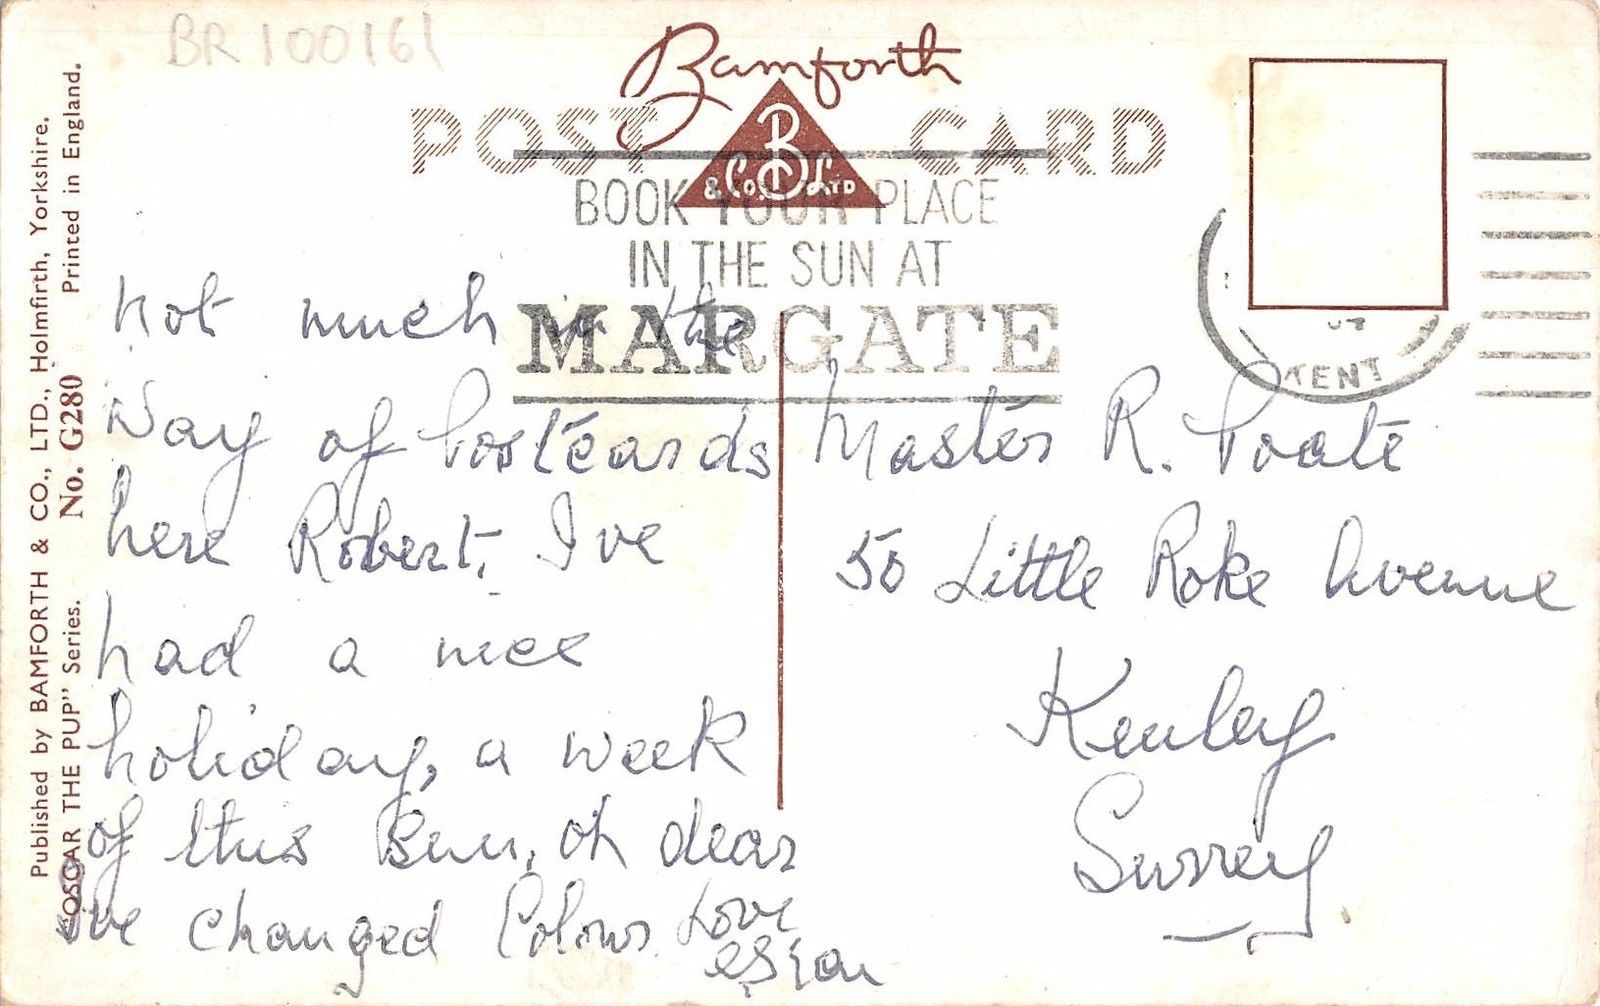 BR100161
Bamforth
POST CARD
B
& Co. LTD
BOOK YOUR PLACE
IN THE SUN AT
MARGATE
KENT
Published by BAMFORTH & CO., LTD., Holmfirth, Yorkshire.
"OSCAR THE PUP" Series. No. G280 Printed in England.
Not much in the
Way of Postcards
here Robert, I've
had a nice
holiday, a week
of this Sun, oh dear
I've changed Colour. Love
Master R. Poate
50 Little Roke Avenue
Kenley
Surrey